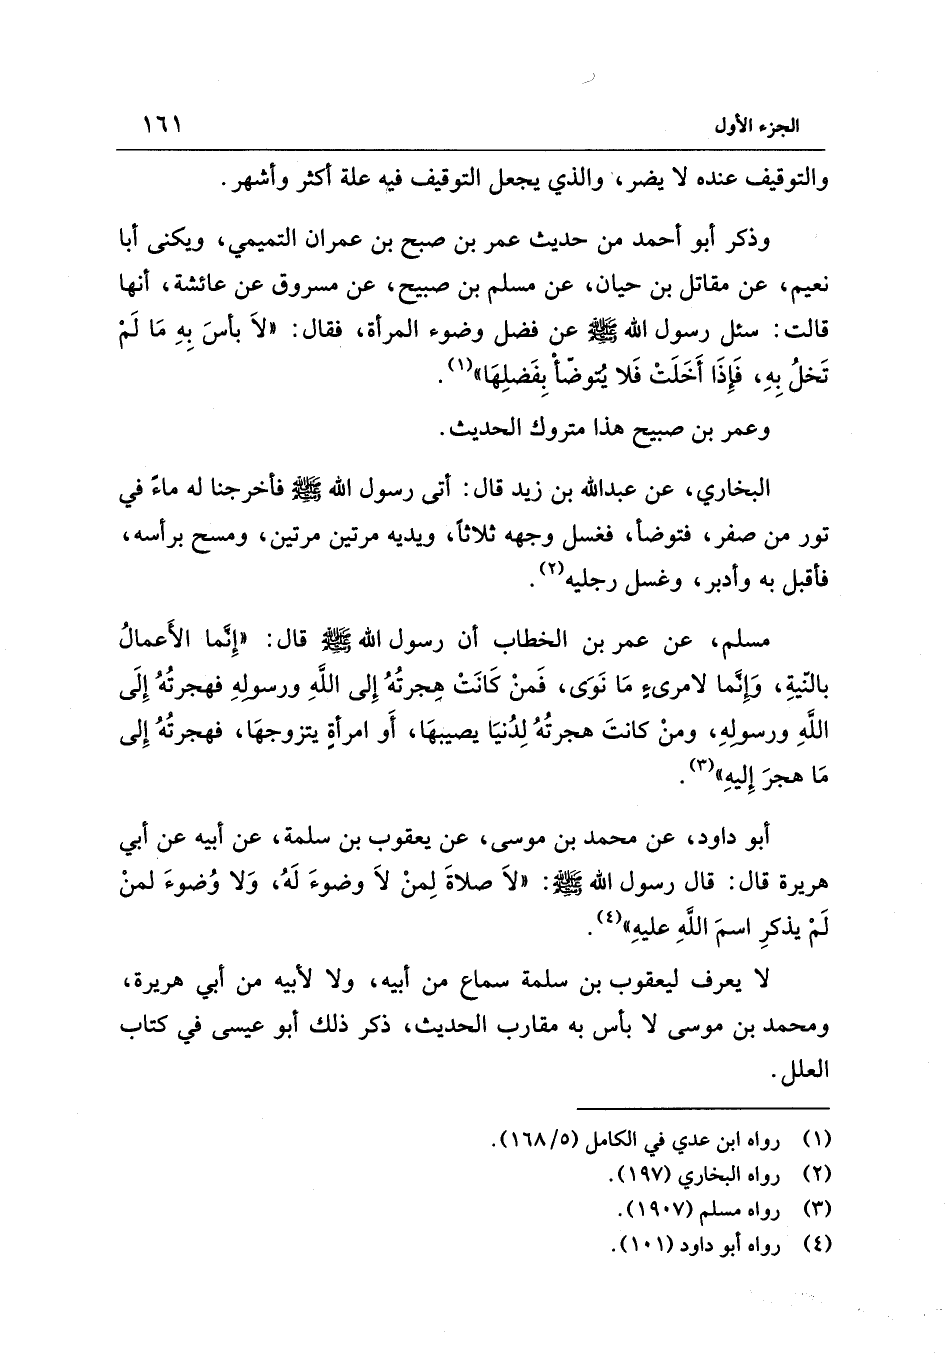 الجزء الأول ١٦١
والتوقيف عنده لا يضر، والذي يجعل التوقيف فيه علة أكثر وأشهر.
وذكر أبو أحمد من حديث عمر بن صبح بن عمران التميمي، ويكنى أبا
نعيم، عن مقاتل بن حيان، عن مسلم بن صبيح، عن مسروق عن عائشة، أنها
قالت: سئل رسول الله ﷺ عن فضل وضوء المرأة، فقال: «لاَ بأسَ بِهِ مَا لَمْ
تَخلُ بِهِ، فَإِذَا أَخَلَتْ فَلا يُتوضّأْ بِفَضلِهَا»(١).
وعمر بن صبيح هذا متروك الحديث.
البخاري، عن عبدالله بن زيد قال: أتى رسول الله ﷺ فأخرجنا له ماءً في
تور من صفر، فتوضأ، فغسل وجهه ثلاثاً، ويديه مرتين مرتين، ومسح برأسه،
فأقبل به وأدبر، وغسل رجليه(٢).
مسلم، عن عمر بن الخطاب أن رسول الله ﷺ قال: «إِنَّما الأَعمالُ
بالنّيةِ، وَإِنَّما لامرىءٍ مَا نَوَى، فَمنْ كَانَتْ هِجرتُهُ إلى اللَّهِ ورسولِهِ فهجرتُهُ إِلَى
اللَّهِ ورسولِهِ، ومنْ كانتَ هجرتُهُ لِدُنيَا يصيبهَا، أَو امرأةٍ يتزوجهَا، فهجرتُهُ إلى
مَا هجرَ إِليهِ»(٣).
أبو داود، عن محمد بن موسى، عن يعقوب بن سلمة، عن أبيه عن أبي
هريرة قال: قال رسول الله ﷺ: «لاَ صلاةَ لِمنْ لاَ وضوءَ لَهُ، وَلا وُضوءَ لمنْ
لَمْ يذكرِ اسمَ اللَّهِ عليهِ»(٤).
لا يعرف ليعقوب بن سلمة سماع من أبيه، ولا لأبيه من أبي هريرة،
ومحمد بن موسى لا بأس به مقارب الحديث، ذكر ذلك أبو عيسى في كتاب
العلل.
(١) رواه ابن عدي في الكامل (١٦٨/٥).
(٢) رواه البخاري (١٩٧).
(٣) رواه مسلم (١٩٠٧).
(٤) رواه أبو داود (١٠١).